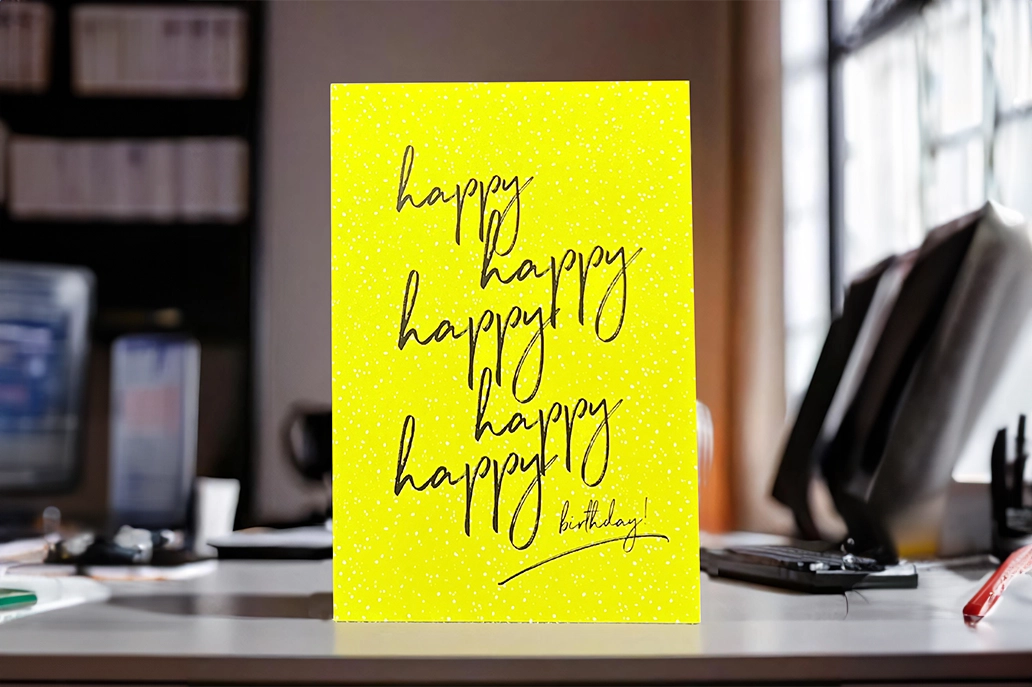 happy
happy
happy
happy
happy
birthday!